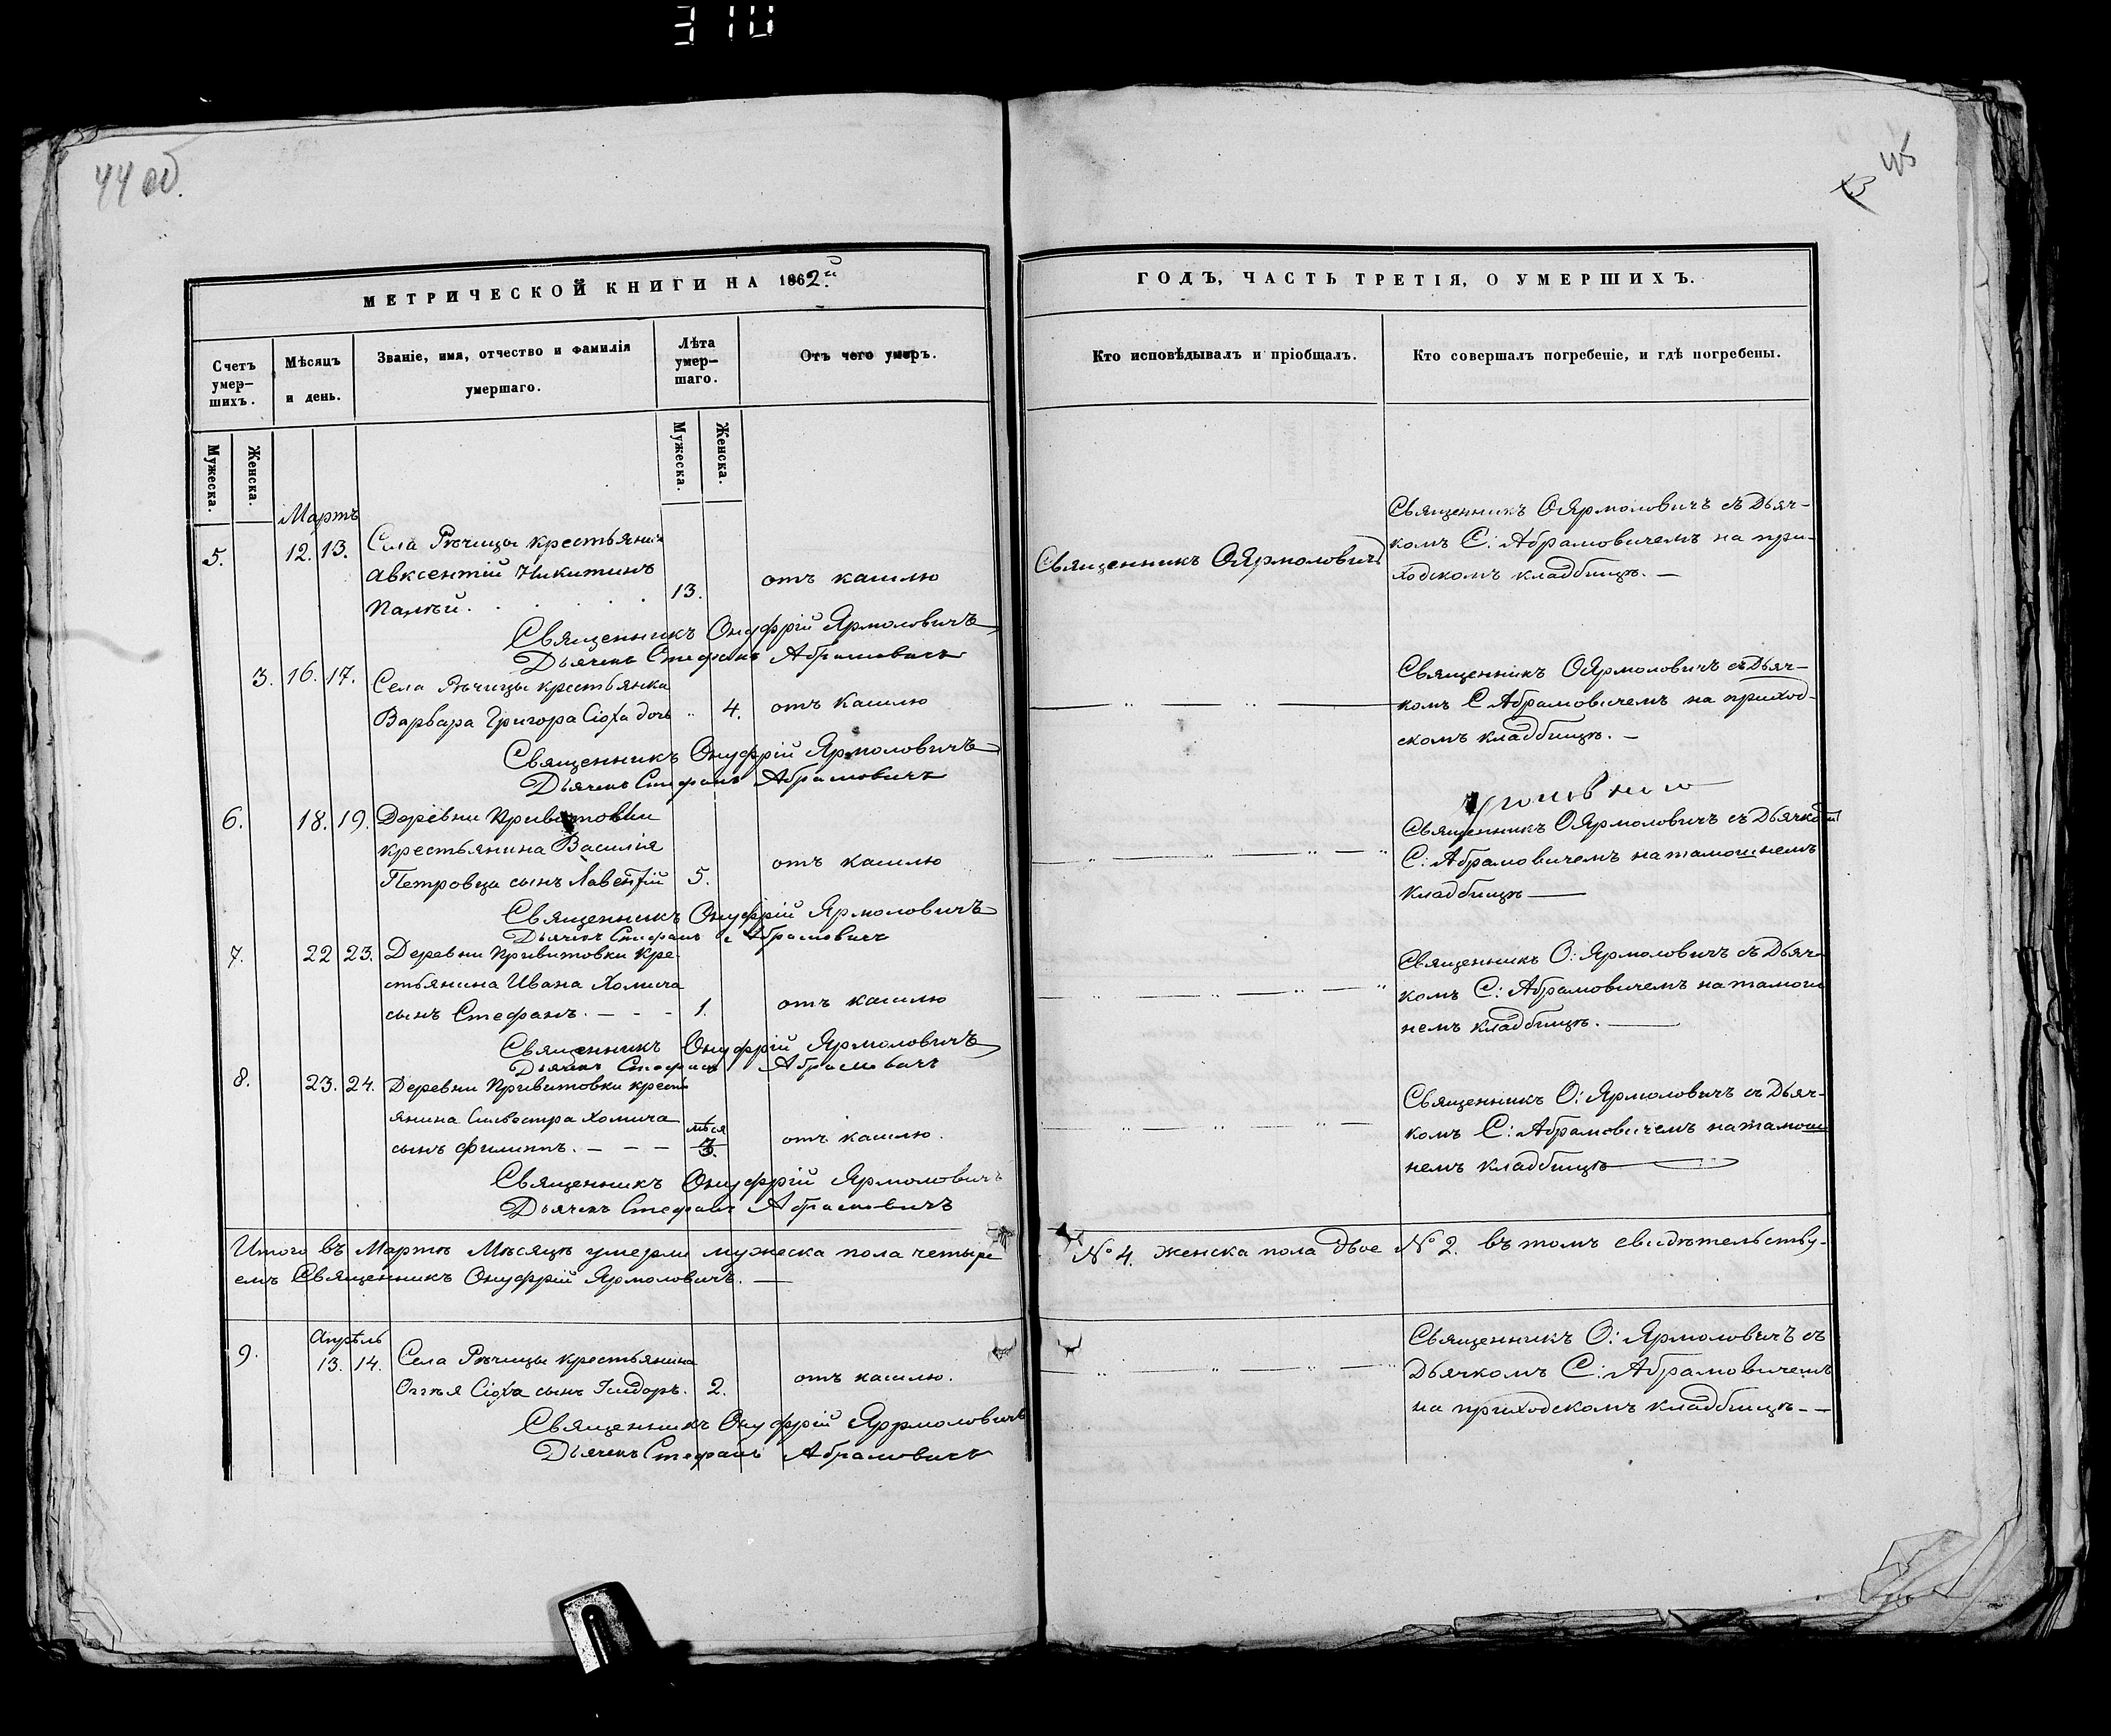 310
44 об.
45
МЕТРИЧЕСКОЙ КНИГИ НА 1862й
ГОДЪ, ЧАСТЬ ТРЕТІЯ, О УМЕРШИХЪ.
Счетъ умер–шихъ.
Мѣсяцъ и день.
Званіе, имя, отчество и фамилія умершаго.
Лѣта умер–шаго.
Отъ чего умеръ.
Кто исповѣдывалъ и пріобщалъ.
Кто совершалъ погребеніе, и гдѣ погребены.
Мужеска.
Женска.
Мужеска.
Женска.
Мартъ
5. 12. 13. Села Рѣчицы крестьянинъ
Авксентій Никитинъ
13. отъ кашлю
Священникъ О Ярмоловичъ
Священникъ О Ярмоловичъ съ Дьяч-
комъ С: Абрамовичемъ на при-
ходскомъ кладбищѣ. —
Священникъ Онуфрій Ярмоловичъ
Дьячекъ Стефанъ Абрамовичъ
3. 16. 17. Села Рѣчицы крестьянка
Варвара Григора Сюха дочь „ 4. отъ кашлю
Священникъ О Ярмоловичъ съ Дьяч-
комъ С Абрамовичемъ на приход-
скомъ кладбищѣ. —
Священникъ Онуфрій Ярмоловичъ
Дьячекъ Стефанъ Абрамовичъ
6. 18. 19. Деревни Привитовки
крестьянина Василія
Петровца сынъ Лавентій 5. отъ кашлю
Священникъ О Ярмоловичъ съ Дьячкомъ
С: Абрамовичемъ на тамошнемъ
кладбищѣ —
Священникъ Онуфрій Ярмоловичъ
Дьячекъ Стефанъ Абрамовичъ
7. 22 23. Деревни Привитовки кре-
стьянина Ивана Хомича
сынъ Стефанъ. — - - 1. отъ кашлю
Священникъ О: Ярмоловичъ съ Дьяч-
комъ С: Абрамовичемъ на тамош
немъ кладбищѣ. —
Священникъ Онуфрій Ярмоловичъ
Дьячекъ Стефанъ Абрамовичъ
8. 23. 24. Деревни Привитовки кресть
янина Сильвестра Хомича
сынъ Филиппъ. — - - мѣся 3. отъ кашлю.
Священникъ О: Ярмоловичъ съ Дьяч-
комъ С: Абрамовичемъ на тамош
немъ кладбищѣ
Священникъ Онуфрій Ярмоловичъ
Дьячекъ Стефанъ Абрамовичъ
Итого въ Мартѣ Мѣсяцѣ умерли мужеска пола четыре № 4. женска пола двое № 2. въ томъ свидѣтельству-
емъ Священникъ Онуфрій Ярмоловичъ. —
Апрѣль
9. 13. 14. Села Рѣчицы крестьянина
Сюха сынъ Исидоръ. 2. отъ кашлю.
Священникъ О: Ярмоловичъ съ
Дьячкомъ С: Абрамовичемъ
на приходскомъ кладбищѣ - —
Священникъ Онуфрій Ярмоловичъ
Дьячекъ Стефанъ Абрамовичъ